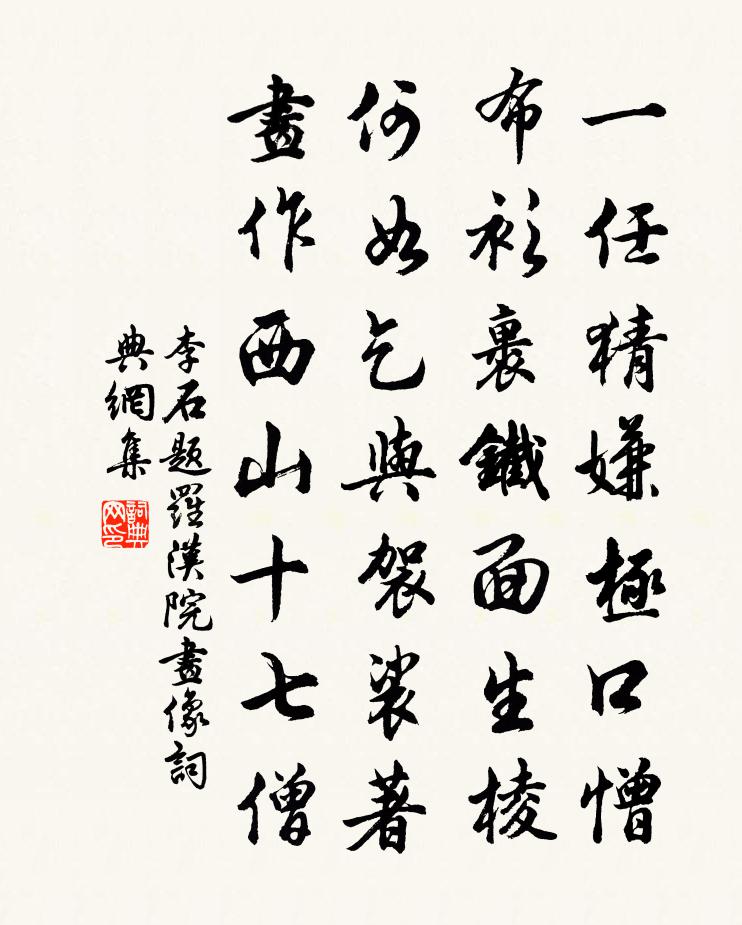 一任猜嫌極口憎
布衫裹鐵面生棱
何如乞與袈裟著
畫作西山十七僧
李石题羅漢院畫像詞
典網集
詞典
网印